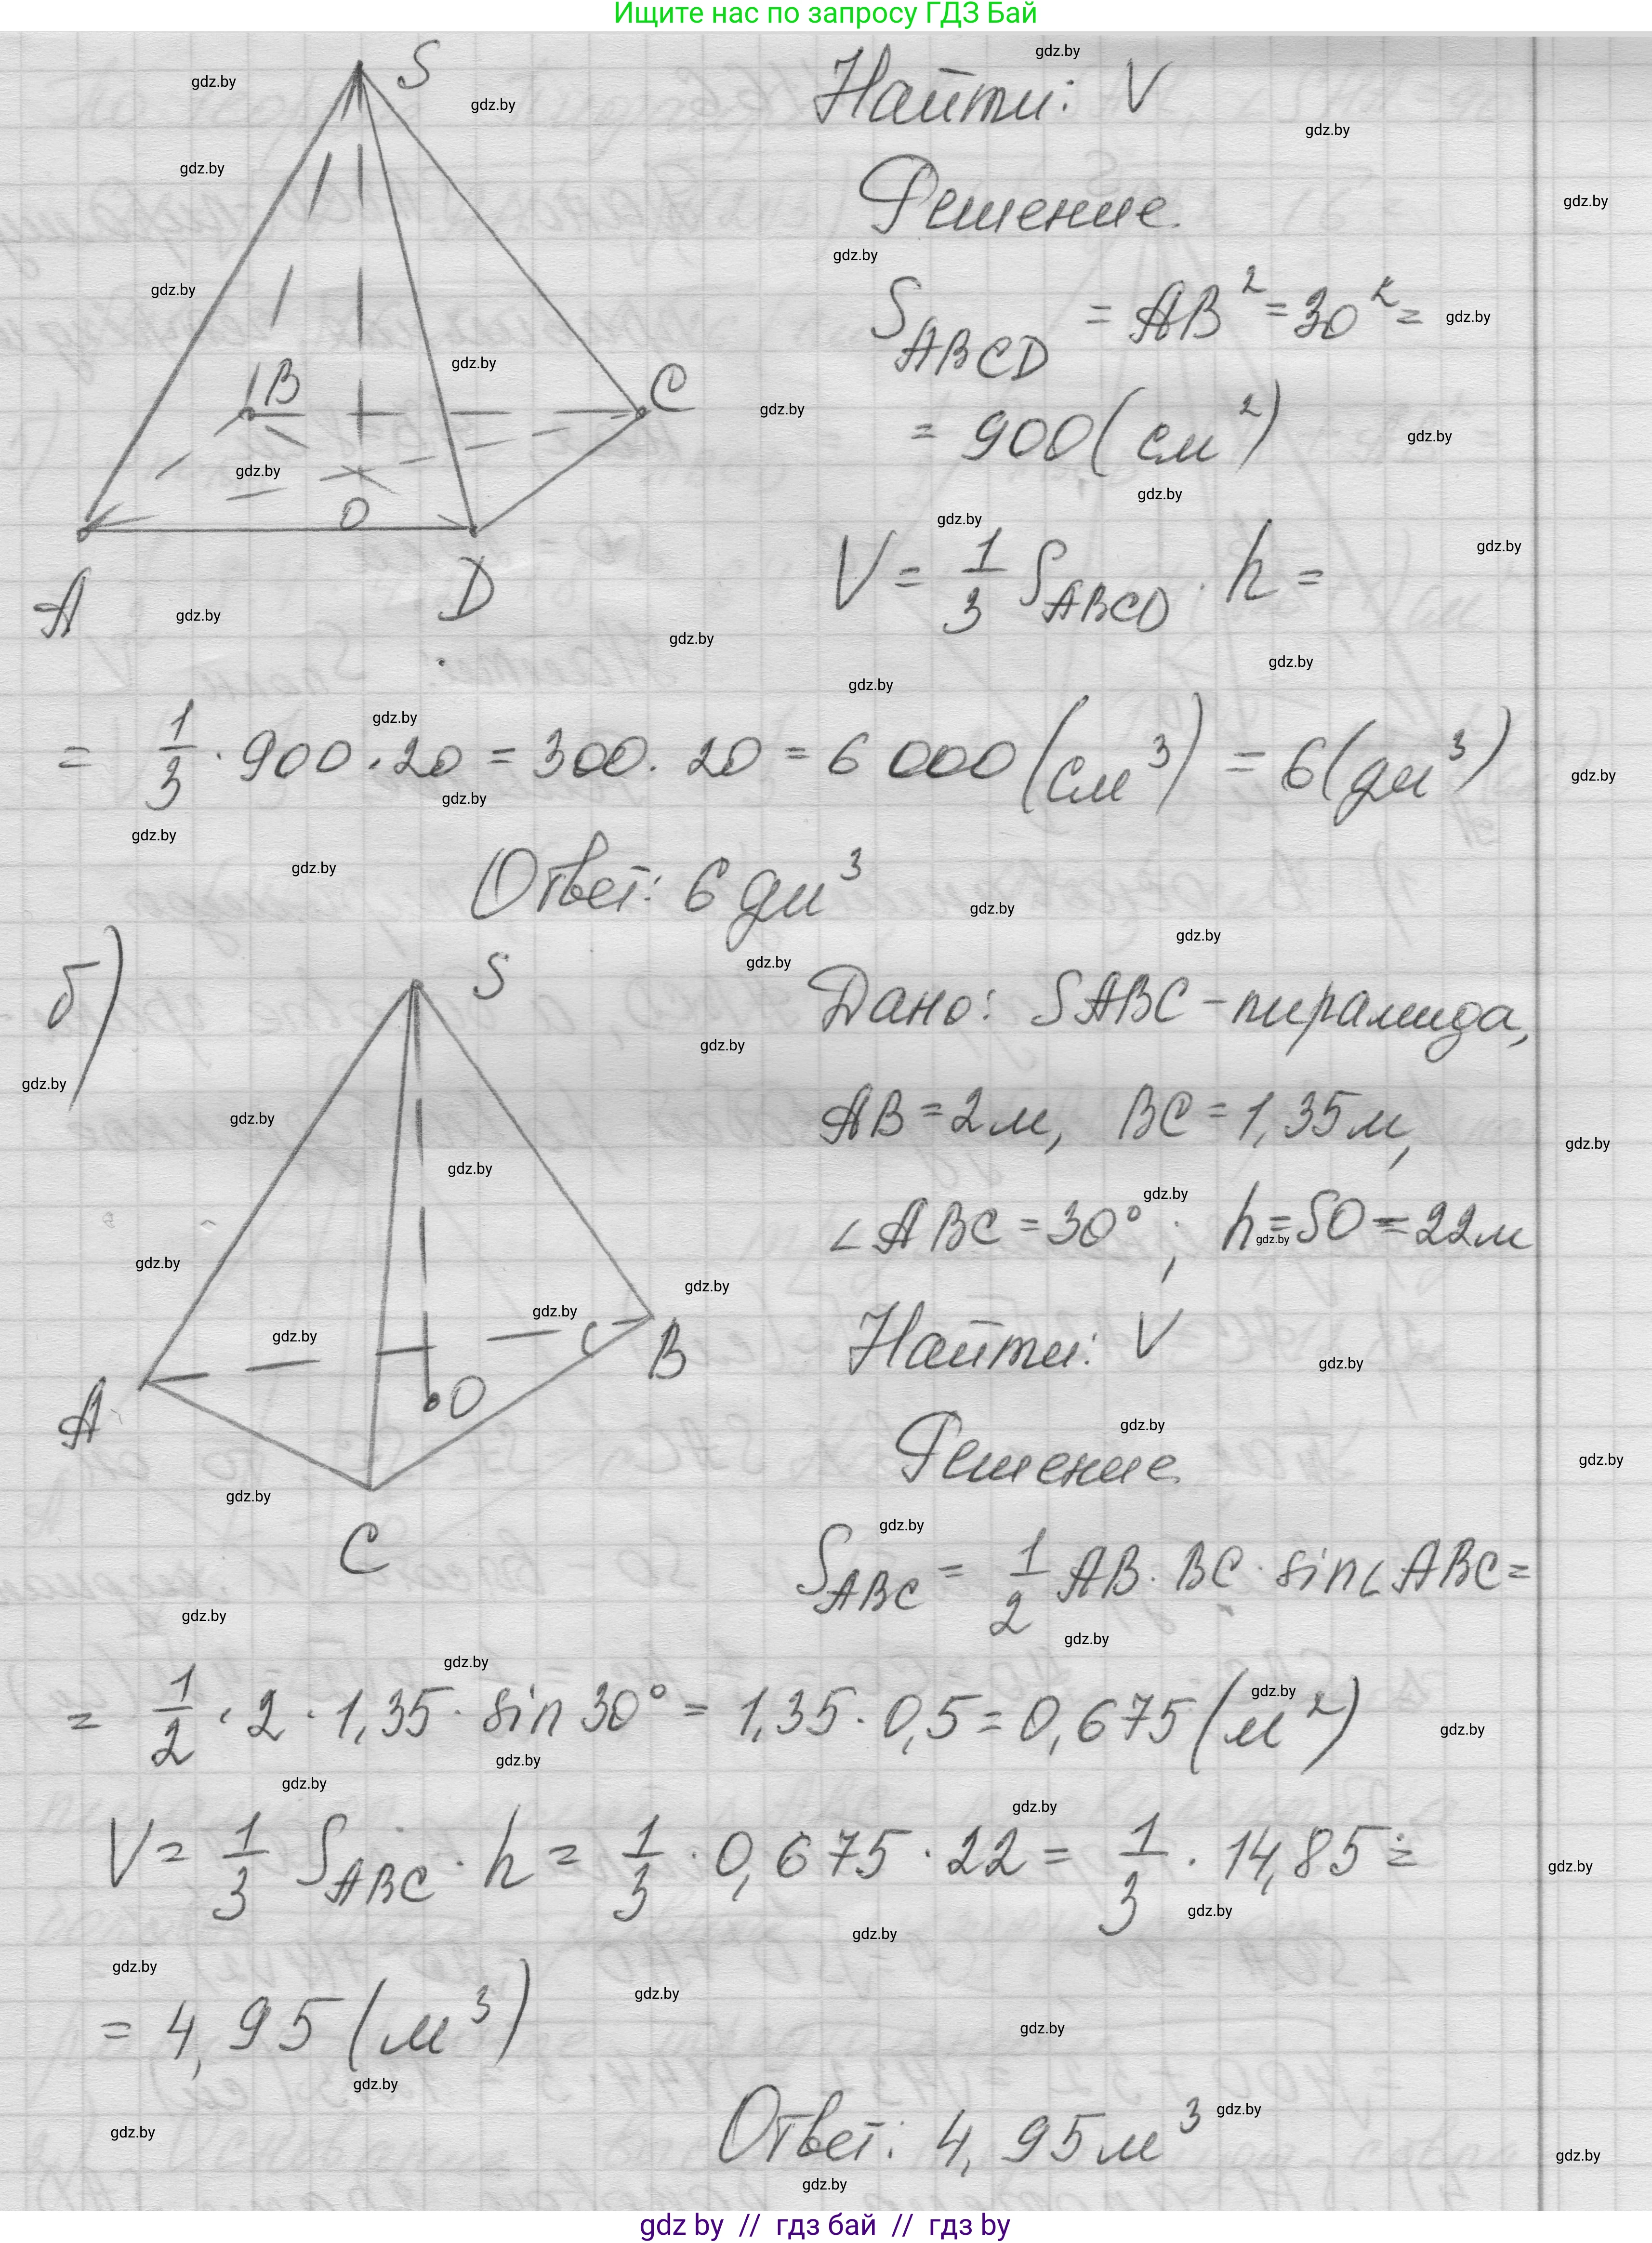 Ищите нас по запросу ГДЗ Бай
S
Найти: V
Решение.
S_ABCD = AB² = 30² =
= 900 (см²)
B
C
O
A
D
V = 1/3 S_ABCD · h =
= 1/3 · 900 · 20 = 300 · 20 = 6 000 (см³) = 6 (дм³)
Ответ: 6 дм³
б)
S
Дано: SABC – пирамида,
AB = 2 м, BC = 1,35 м,
∠ABC = 30°; h = SO = 22 м
A
B
O
C
Найти: V
Решение.
S_ABC = 1/2 AB · BC · sin∠ABC =
= 1/2 · 2 · 1,35 · sin 30° = 1,35 · 0,5 = 0,675 (м²)
V = 1/3 S_ABC · h = 1/3 · 0,675 · 22 = 1/3 · 14,85 =
= 4,95 (м³)
Ответ: 4,95 м³
gdz by // гдз бай // гдз by